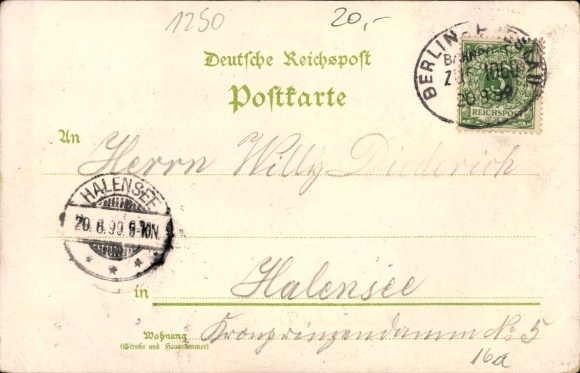 1250 20,-
Deutsche Reichspost
Postkarte
BERLIN
BAHNPOST
ZUG 1068
20.8.99
5
REICHSPOST
An
Herrn Willy Diederich
HALENSEE
20.8.99.8-10N
* * *
in Halensee
Wohnung
(Straße und Hausnummer)
Kronprinzendamm No 5
16a